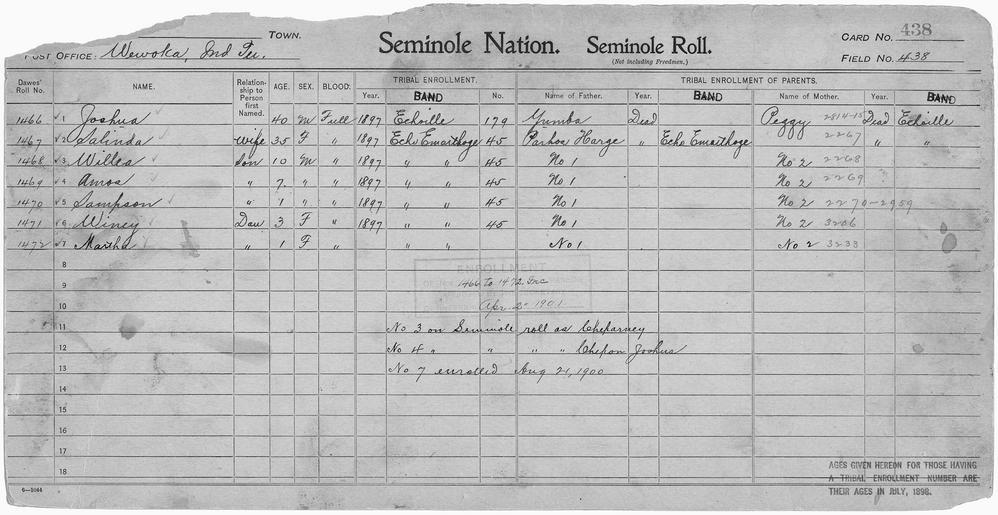 TOWN.
Seminole Nation. Seminole Roll.
(Not including Freedmen.)
CARD NO. 438
POST OFFICE: Wewoka, Ind Ter.
FIELD NO. 438
Dawes' Roll No. NAME. Relationship to Person first Named. AGE. SEX. BLOOD: TRIBAL ENROLLMENT. TRIBAL ENROLLMENT OF PARENTS.
Year. BAND No. Name of Father. Year. BAND Name of Mother. Year. BAND
1466 √ 1 Joshua 40 M Full 1897 Echoille 179 Yumba Dead Peggy 2814-15 Dead Echoille
1467 √ 2 Salinda Wife 35 F " 1897 Echo Emarthoge 45 Parhos Harge " Echo Emarthoge 2267 " "
1468 √ 3 Willea Son 10 M " 1897 " " 45 No 1 No 2 2268
1469 √ 4 Amos " 7. " " 1897 " " 45 No 1 No 2 2269
1470 √ 5 Sampson " 1 " " 1897 " " 45 No 1 No 2 2270-2959
1471 √ 6 Winey Dau 3 F " 1897 " " 45 No 1 No 2 3206
1472 √ 7 Martha " 1 F " " " No 1 No 2 3233
8
ENROLLMENT
9 1466 to 1472 Inc
10 Apr 2 1901
11 No 3 on Seminole roll as Cheparney
12 No 4 " " " " Chepon Joshua
13 No 7 enrolled Aug 21, 1900
14
15
16
17
18
AGES GIVEN HEREON FOR THOSE HAVING
A TRIBAL ENROLLMENT NUMBER ARE
THEIR AGES IN JULY, 1898.
6—1044